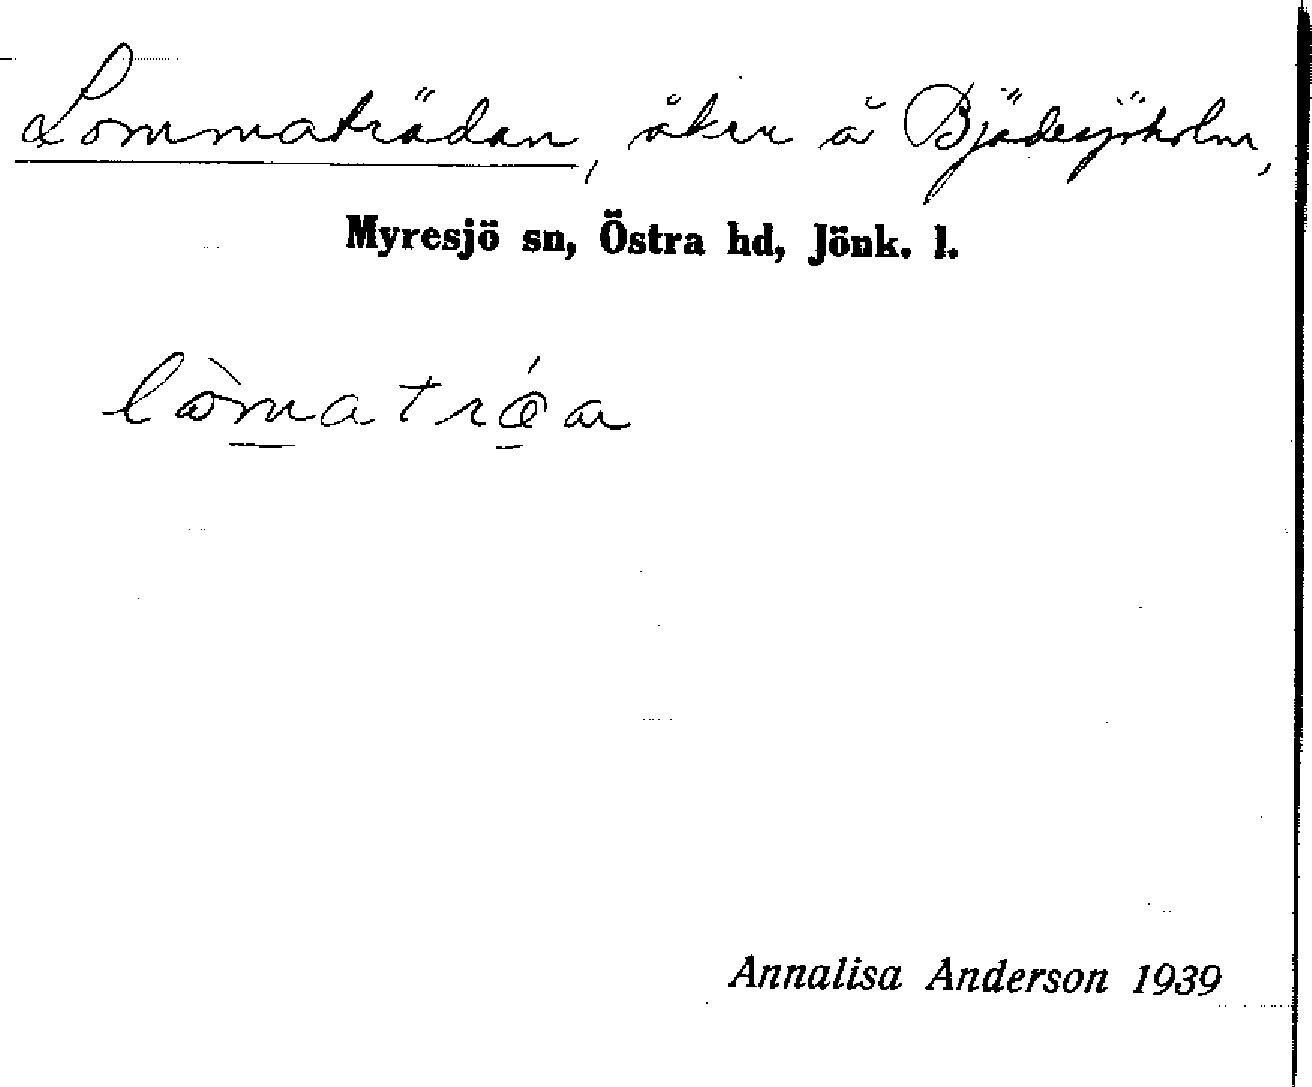 Lommaträdan, åker å Bjädesjöholm,
Myresjö sn, Östra hd, Jönk. l.
Annalisa Anderson 1939